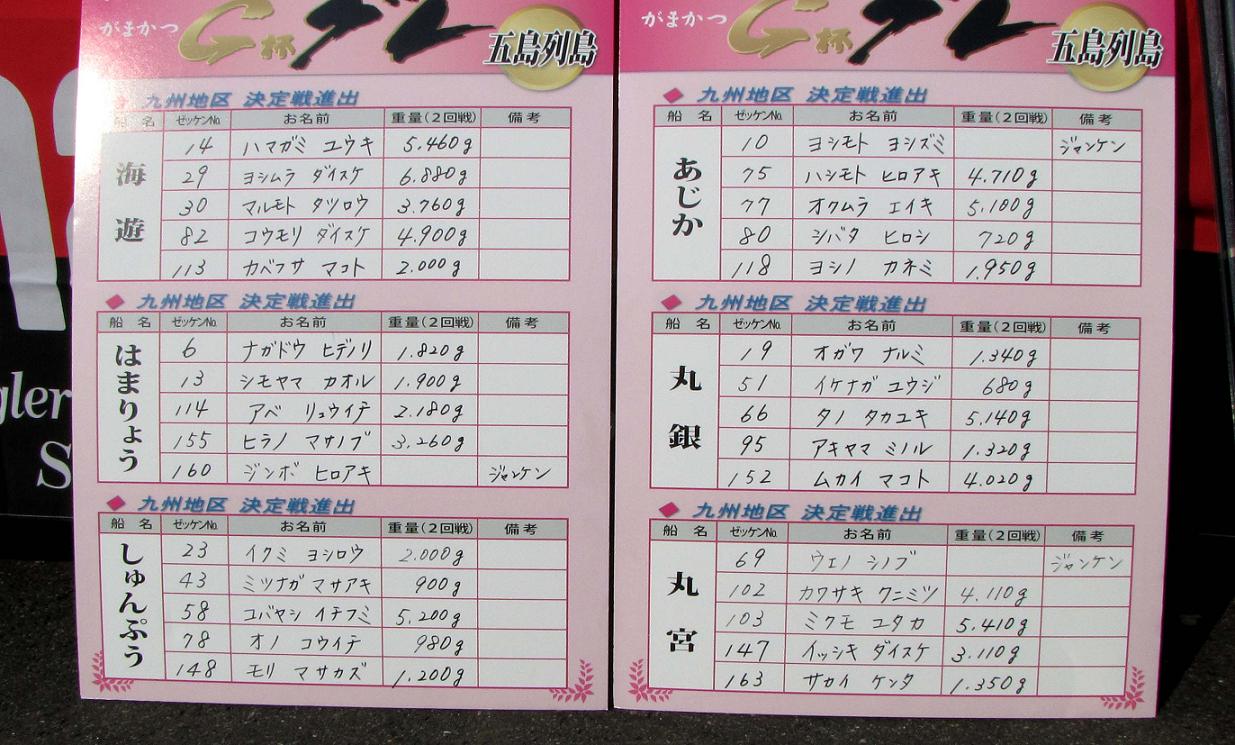 がまかつ G杯グレ 五島列島
九州地区 決定戦進出
船名 ゼッケンNo. お名前 重量(2回戦) 備考
海遊
14 ハマガミ ユウキ 5.460g
29 ヨシムラ ダイスケ 6.880g
30 マルモト タツロウ 3.760g
82 コウモリ ダイスケ 4.900g
113 カベフサ マコト 2.000g
九州地区 決定戦進出
船名 ゼッケンNo. お名前 重量(2回戦) 備考
はまりょう
6 ナガドウ ヒデノリ 1.820g
13 シモヤマ カオル 1.900g
114 アベ リュウイチ 2.180g
155 ヒラノ マサノブ 3.260g
160 ジンボ ヒロアキ ジャンケン
九州地区 決定戦進出
船名 ゼッケンNo. お名前 重量(2回戦) 備考
しゅんぷう
23 イクミ ヨシロウ 2.000g
43 ミツナガ マサアキ 900g
58 コバヤシ イチフミ 5.200g
78 オノ コウイチ 980g
148 モリ マサカズ 1.200g
がまかつ G杯グレ 五島列島
九州地区 決定戦進出
船名 ゼッケンNo. お名前 重量(2回戦) 備考
あじか
10 ヨシモト ヨシズミ ジャンケン
75 ハシモト ヒロアキ 4.710g
77 オクムラ エイキ 5.180g
80 シバタ ヒロシ 720g
118 ヨシノ カネミ 1.950g
九州地区 決定戦進出
船名 ゼッケンNo. お名前 重量(2回戦) 備考
丸銀
19 オガワ ナルミ 1.340g
51 イケナガ ユウジ 680g
66 タノ タカユキ 5.140g
95 アキヤマ ミノル 1.320g
152 ムカイ マコト 4.020g
九州地区 決定戦進出
船名 ゼッケンNo. お名前 重量(2回戦) 備考
丸宮
69 ウエノ シノブ ジャンケン
102 カワサキ クニミツ 4.110g
103 ミクモ ユタカ 5.410g
147 イッシキ ダイスケ 3.110g
163 サカイ ケンタ 1.350g
gler
S